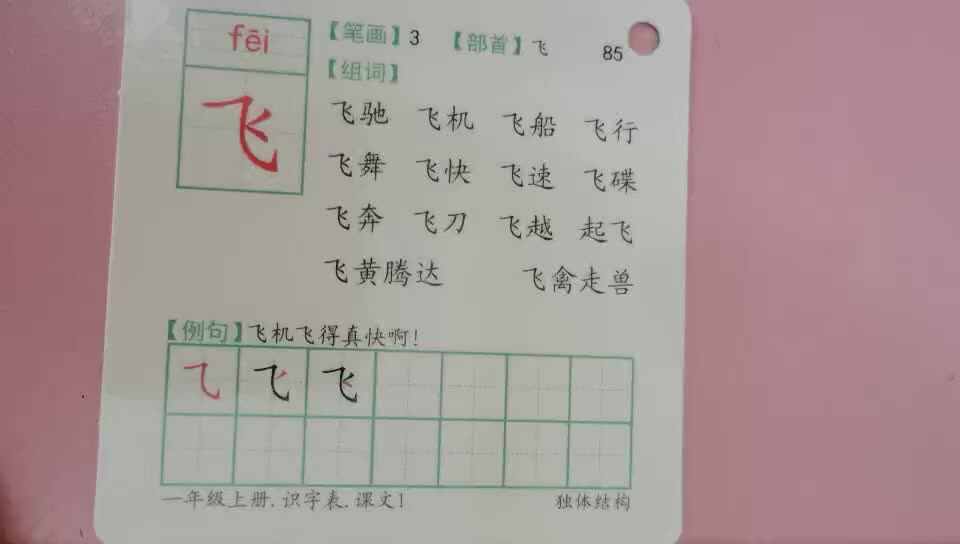 fēi
【笔画】3 【部首】飞 85
飞
【组词】
飞驰 飞机 飞船 飞行
飞舞 飞快 飞速 飞碟
飞奔 飞刀 飞越 起飞
飞黄腾达 飞禽走兽
【例句】飞机飞得真快啊!
⺄ 飞 飞
一年级上册.识字表.课文1 独体结构